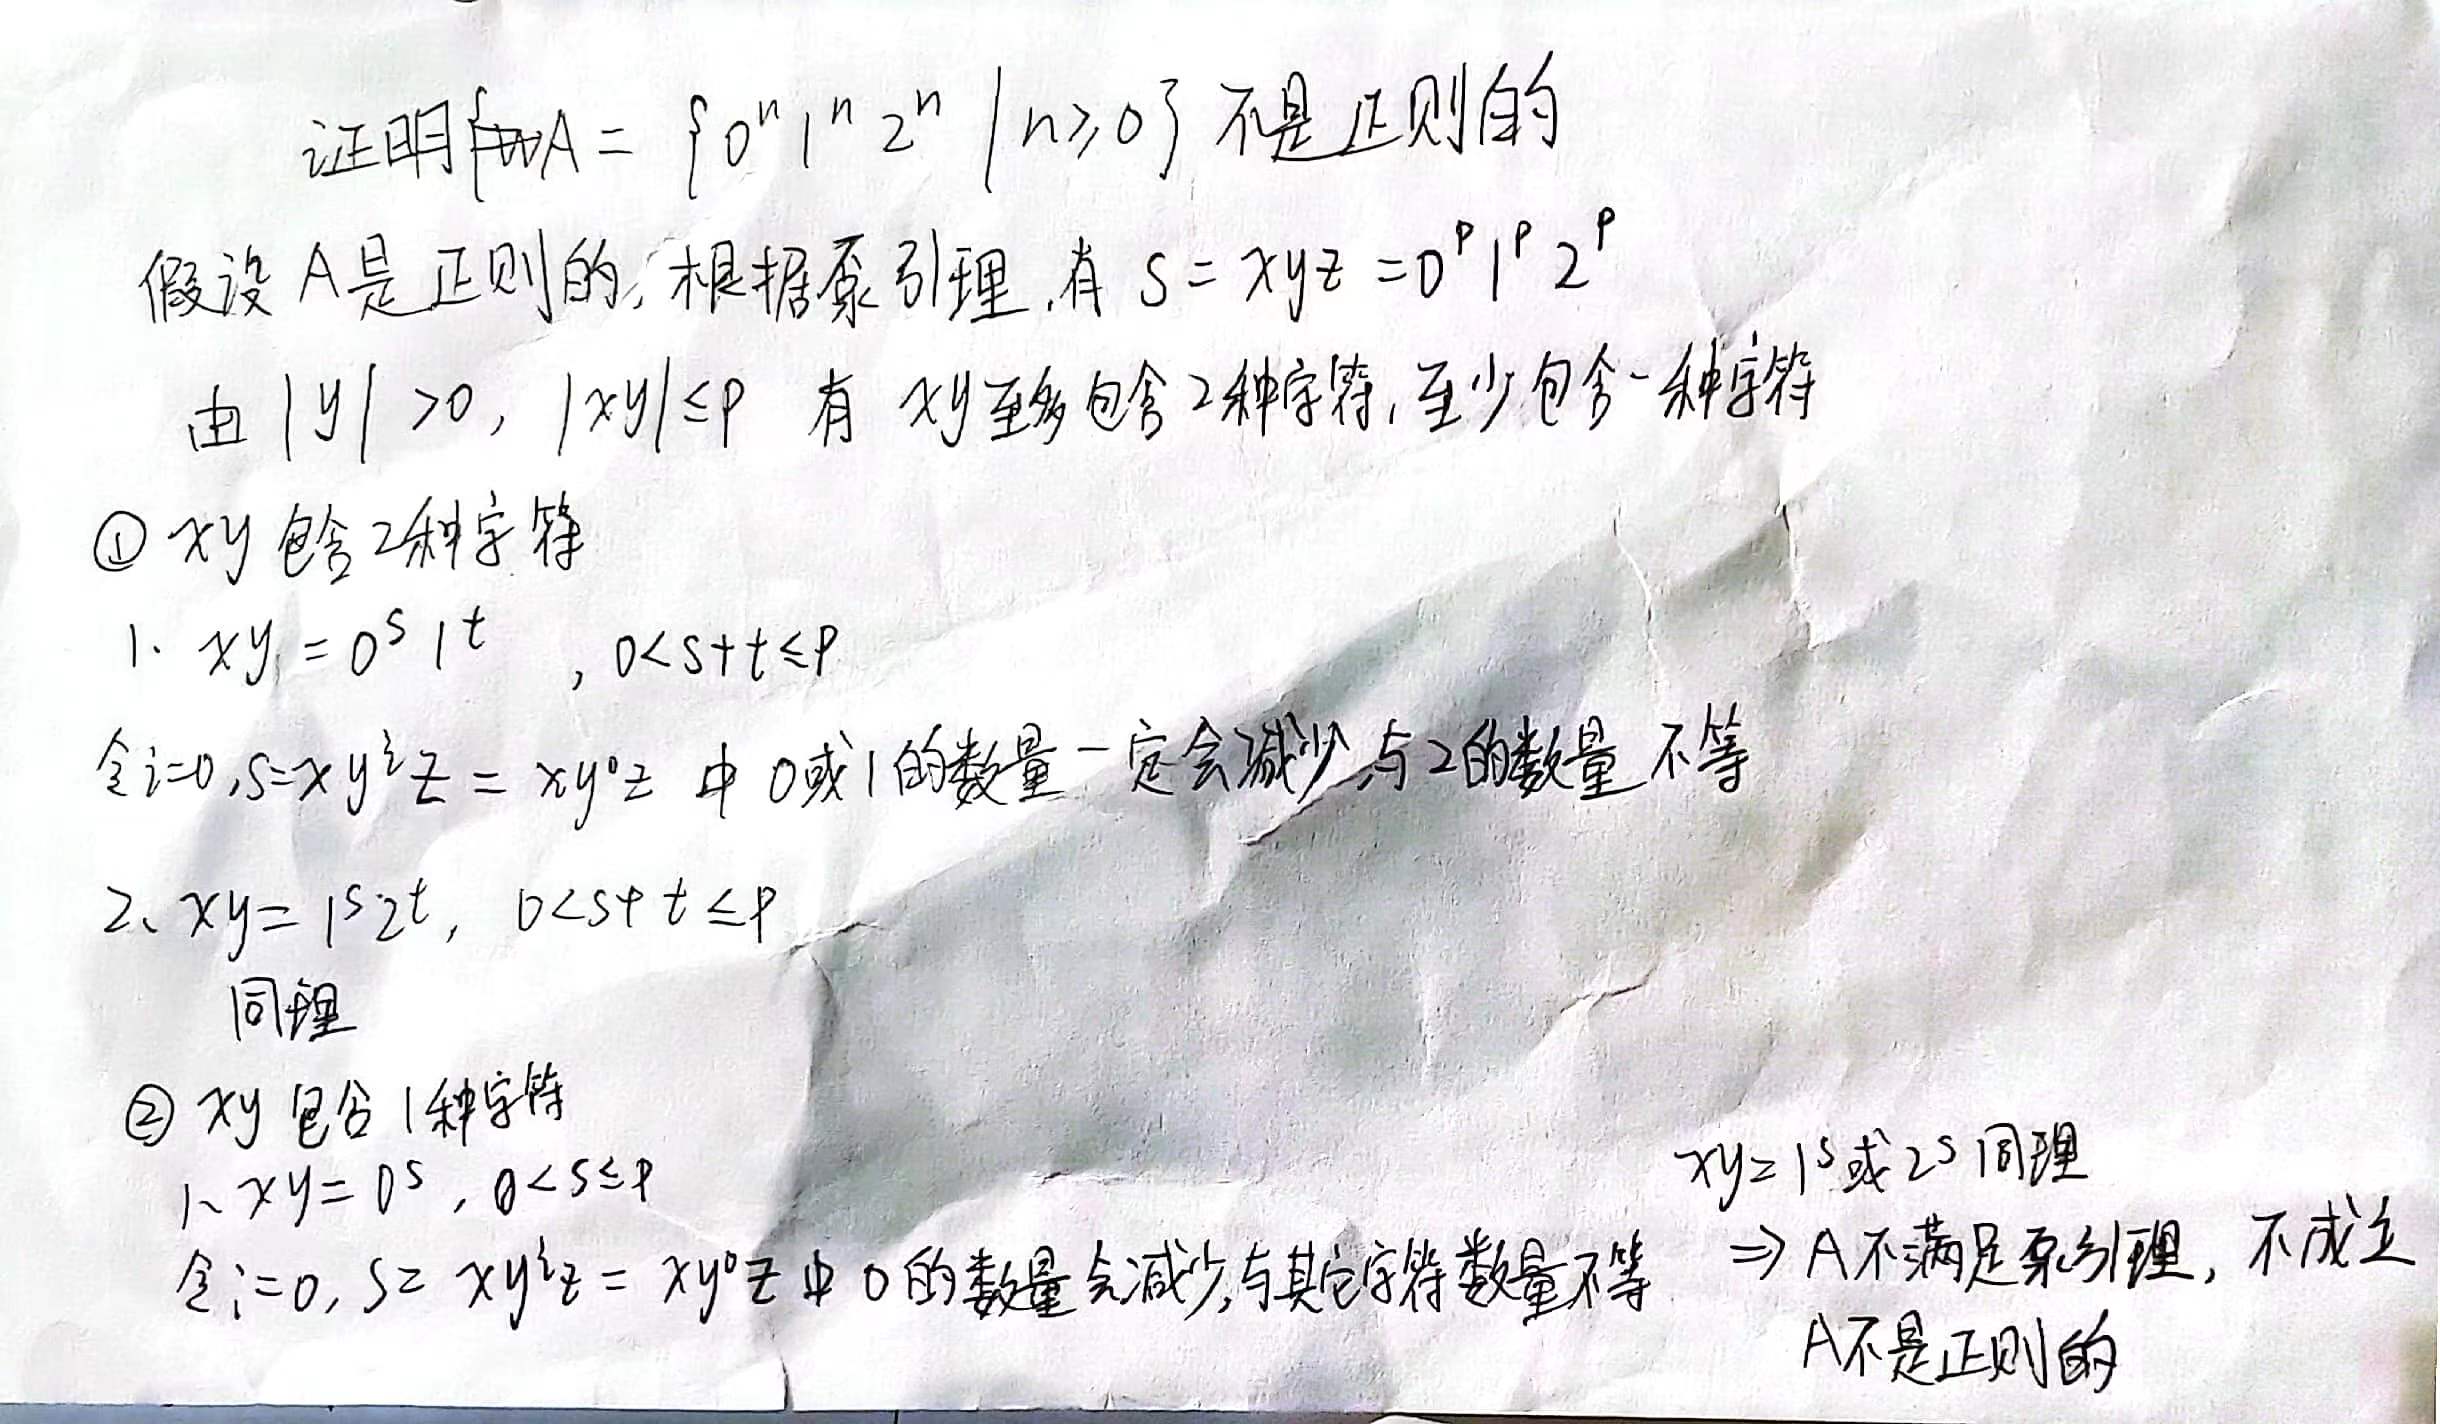 证明A = {0ⁿ 1ⁿ 2ⁿ | n≥0} 不是正则的
假设A是正则的, 根据泵引理,有 S = xyz = 0ᵖ 1ᵖ 2ᵖ
由 |y| >0, |xy|≤p 有 xy至多包含2种字符,至少包含一种字符
① xy包含2种字符
1、xy = 0ˢ 1ᵗ , 0<s+t≤p
令i=0,S=xyⁱz = xy⁰z 中 0或1的数量一定会减少,与2的数量不等
2、xy= 1ˢ2ᵗ, 0<s+t≤p
同理
② xy包含1种字符
1、xy= 0ˢ, 0<s≤p
令i=0, S= xyⁱz = xy⁰z 中 0的数量会减少,与其它字符数量不等
xy=1ˢ或2ˢ同理
⇒ A不满足泵引理, 不成立
A不是正则的